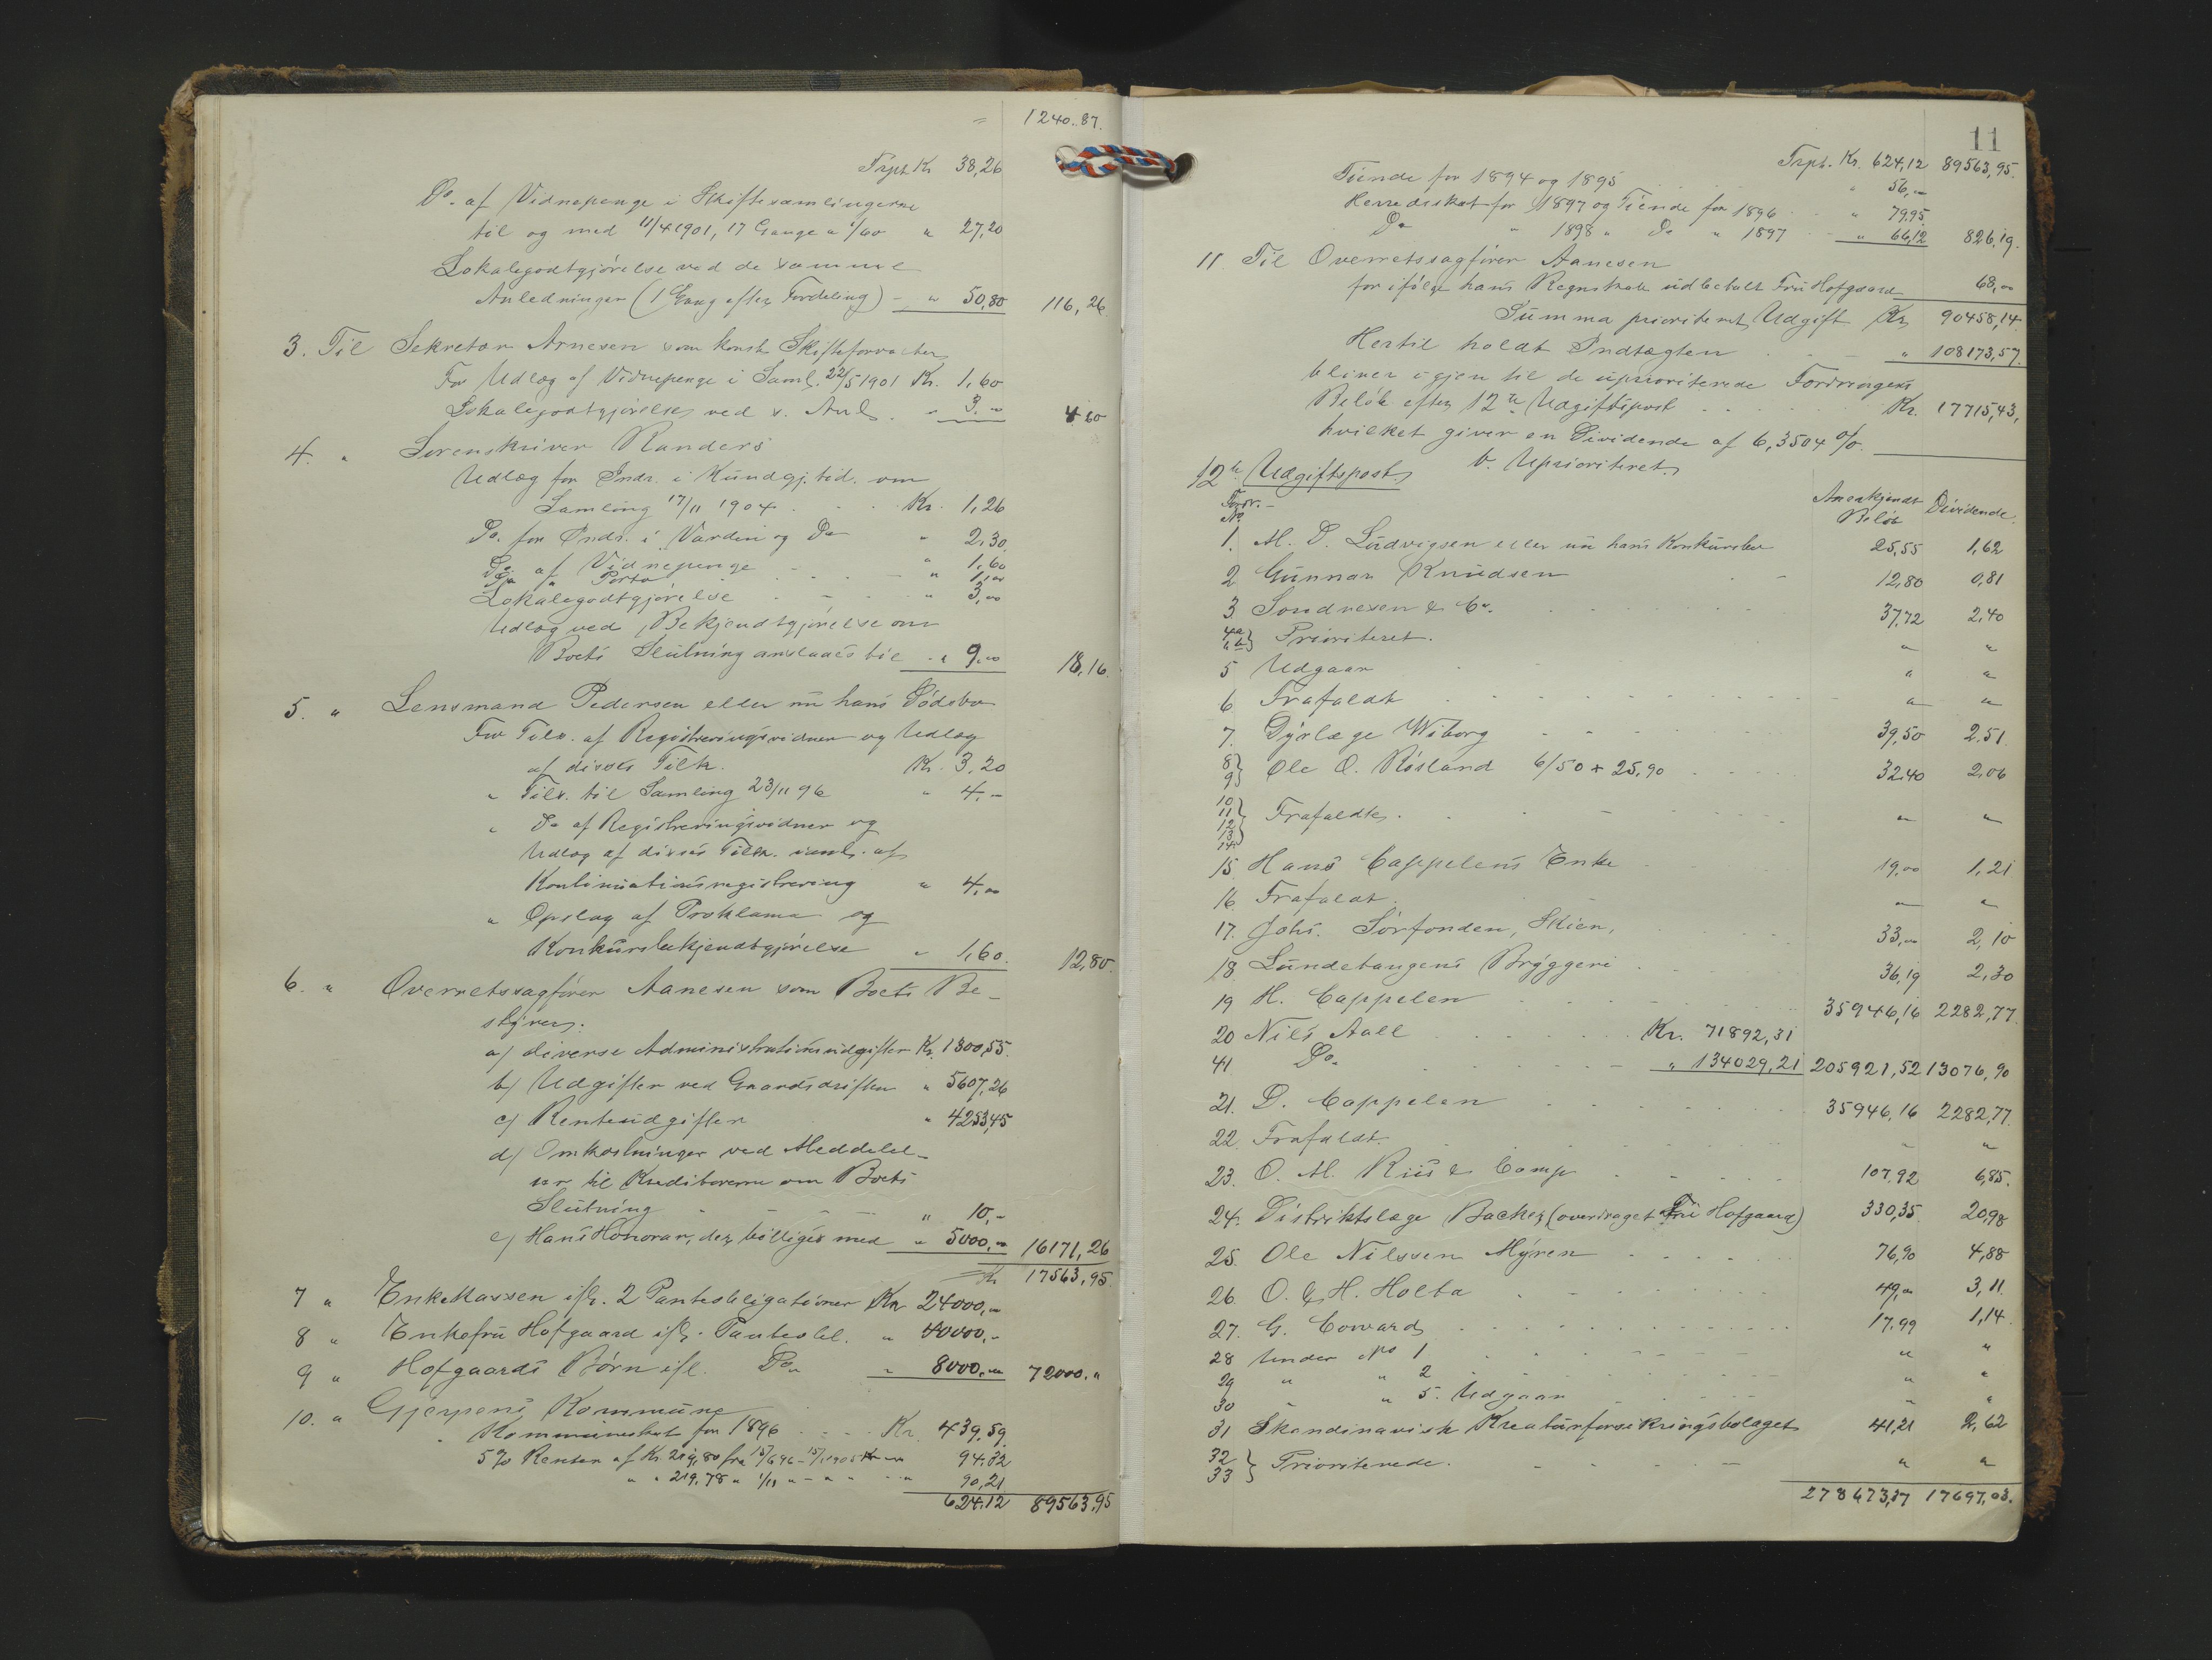 " 1240.87.
Trpt. Kr 38,26
Do. af Vidnepenge i Skiftesamlingerne
til og med 11/4 1901, 17 Gange a 1/60 " 27,20
Lokalegodtgjörelse ved de samme
Anledninger (1 Gang efter Fordeling) - " 50,80 116,26
3. Til Sekretær Arnesen som konst. Skifteforvalter
For Udlæg af Vidnepenge i Saml. 22/5 1901 Kr. 1,60
Lokalegodtgjörelse ved s. Anl. " 3,- 4,60
4. " Sorenskriver Randers
Udlæg for Indr. i Kundgj. tid. om
Samling 17/11 1904 . . . Kr. 1,26
Do. for Indr. i Varden og Do " 2,30
Do. af Vidnepenge - " 1,60
Do " Porto . . . " 1,00
Lokalegodtgjörelse . - . . " 3,00
Udlæg ved Bekjendtgjörelse om
Boets Slutning anslaaes til . " 9,00 18,16.
5. " Lensmand Pedersen eller nu hans Dödsbo
For Tils. af Registreringsvidner og Udlæg
af disses Tilk. Kr. 3,20
" Tils. til Samling 23/11 96 " 4,-
" Do af Registreringsvidner og
Udlæg af disses Tilk. saml. af
Kontinuationsregistrering " 4,00
" Opslag af Proklama og
Konkursbekjendtgjörelse " 1,60. 12,80.
6. " Overretssagförer Aanesen som Boets Be-
styrer.
a) diverse Administrationsudgifter Kr. 1300,55.
b) Udgifter ved Gaardsdriften " 5607,26
c) Renteudgifter " 4253,45
d) Omkostninger ved Meddelel-
ser til Kreditorerne om Boets
Slutning - - - " 10,-
e) Hans Honorar, der billiges med " 5000,00 16171,26
Kr. 17563,95.
7 " Enkekassen ifl. 2 Panteobligationer Kr 24000,00
8 " Enkefru Hofgaard ifl. Panteobl. " 40000,-
9 " Hofgaards Börn ifl. Do " 8000,00 72000."
10. " Gjerpens Kommune
Kommuneskat for 1896 . . . . Kr. 439.59.
5 % Renter af Kr. 219,80 fra 15/6 96 - 15/1 1905 94.32
" " 219,78 " 1/11 " - " " - " 90,21
624,12 89563,95
11
Trpt. Kr. 624,12 89563,95.
Tiende for 1894 og 1895 . . . " 56,00
Herredsskat for 1897 og Tiende for 1896 . . " 79,95
Do " 1898 " Do " 1897 . . " 66,12 826,19.
11. Til Overretssagförer Aanesen
for ifölge hans Regnskab udbetalt Fru Hofgaard 68,00
Summa prioriteret Udgift Kr. 90458,14.
Hertil holdt Indtægten . - " 108173,57.
bliver igjen til de uprioriterede Fordringers
Belöb efter 12te Udgiftspost . . . . Kr. 17715,43,
hvilket giver en Dividende af 6,3504 %.
b. Uprioriteret.
12te Udgiftspost.
Fordr. No. Anerkjendt Belöb Dividende.
1. M. D. Ludvigsen eller nu hans Konkursbo 25,55 1,62
2 Gunnar Knudsen - 12,80 0,81
3 Sondresen & Co. . . . . 37,72 2,40
4a " b} Prioriteret. " "
5 Udgaar " "
6 Frafaldt " "
7. Dyrlæge Wiborg 39,50 2,51.
8 9} Ole O. Rösland 6/50 + 25,90 . . . 32,40 2,06
10 11 12 13 14} Frafaldt. " "
15. Hans Cappelens Enke 19,00 1,21
16. Frafaldt. " "
17. Johs. Sörfonden, Skien, 33,00 2,10
18. Lundetangens Bryggeri . . . 36,19 2,30
19 H. Cappelen . . . 35946,16 2282,77.
20 Nils Aall . . . Kr. 71892,31
41 Do . . . " 134029,21 205921,52 13076,90
21. D. Cappelen . . . 35946,16 2282,77.
22. Frafaldt. " "
23. O. M. Riis & Comp . . . 107,92 6,85.
24. Distriktslæge Backer (overdraget Fru Hofgaard) 330,35 20,98
25. Ole Nilssen Myren . . . 76,90 4,88
26. O. & H. Holta . . . 49,00 3,11.
27. G. Coward . . . 17,99 1,14.
28 Under No 1 " "
29 " " 2 " "
30 " 5. Udgaar " "
31 Skandinavisk Kreaturforsikringsbolaget 41,21 2,62
32 33} Prioriterede. " "
278673,37 17697,03.